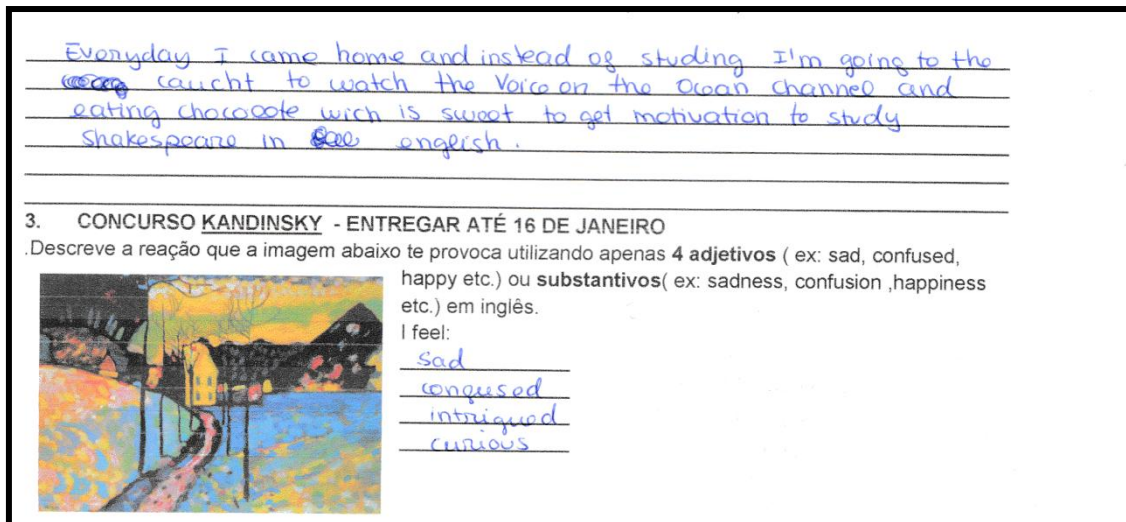 Everyday I came home and instead of studing I'm going to the
caucht to watch the Voice on the Ocean channel and
eating chococote wich is sweet to get motivation to study
Shakespeare in english.
3. CONCURSO KANDINSKY - ENTREGAR ATÉ 16 DE JANEIRO
.Descreve a reação que a imagem abaixo te provoca utilizando apenas 4 adjetivos ( ex: sad, confused,
happy etc.) ou substantivos( ex: sadness, confusion ,happiness
etc.) em inglês.
I feel:
Sad
confused
intrigued
curious